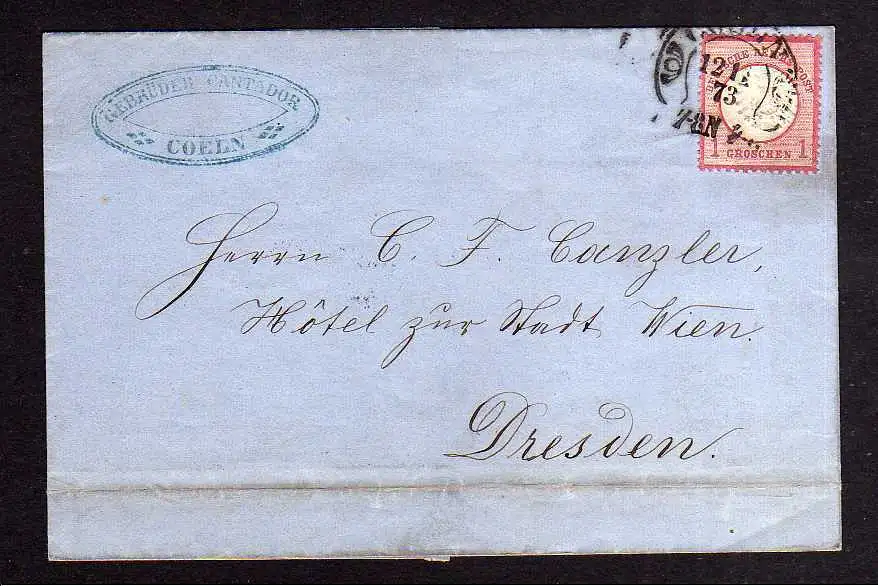 GEBRÜDER CANTADOR
COELN
12 1
73
7-8N
DEUTSCHE REICHS-POST
1 GROSCHEN 1
Herrn C. F. Canzler,
Hôtel zur Stadt Wien.
Dresden.